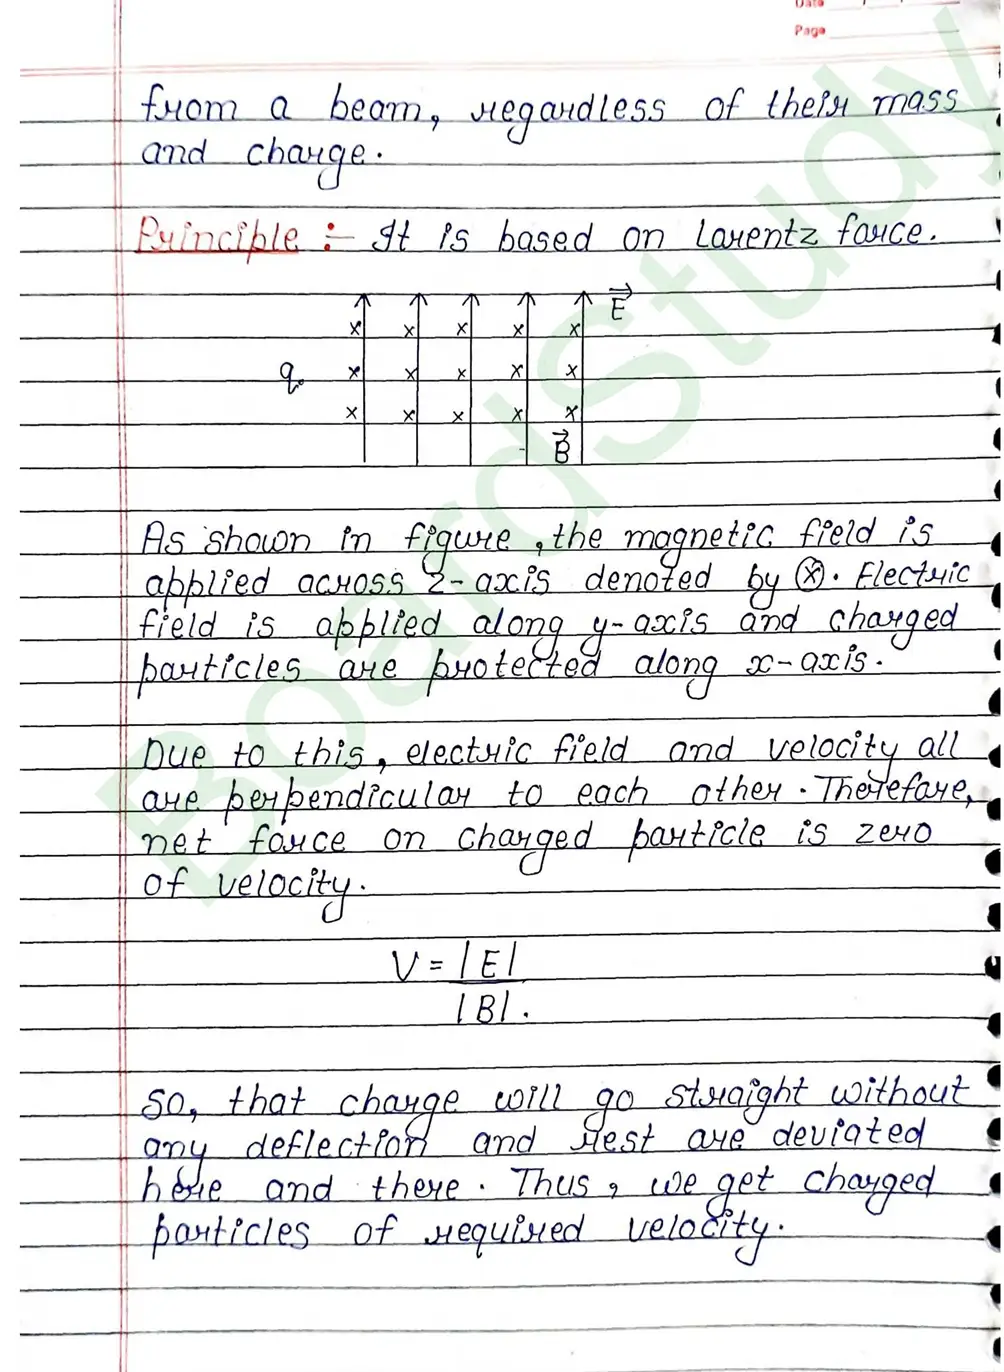 Date
Page
from a beam, regardless of their mass
and charge.
Principle :- It is based on Lorentz force.
E
x x x x x
q x x x x x
x x x x x
B
As shown in figure, the magnetic field is
applied across z-axis denoted by ⊗. Electric
field is applied along y-axis and charged
particles are protected along x-axis.
Due to this, electric field and velocity all
are perpendicular to each other. Therefore,
net force on charged particle is zero
of velocity.
V = |E|
|B|.
so, that charge will go straight without
any deflection and rest are deviated
here and there. Thus, we get charged
particles of required velocity.
BoardStudy